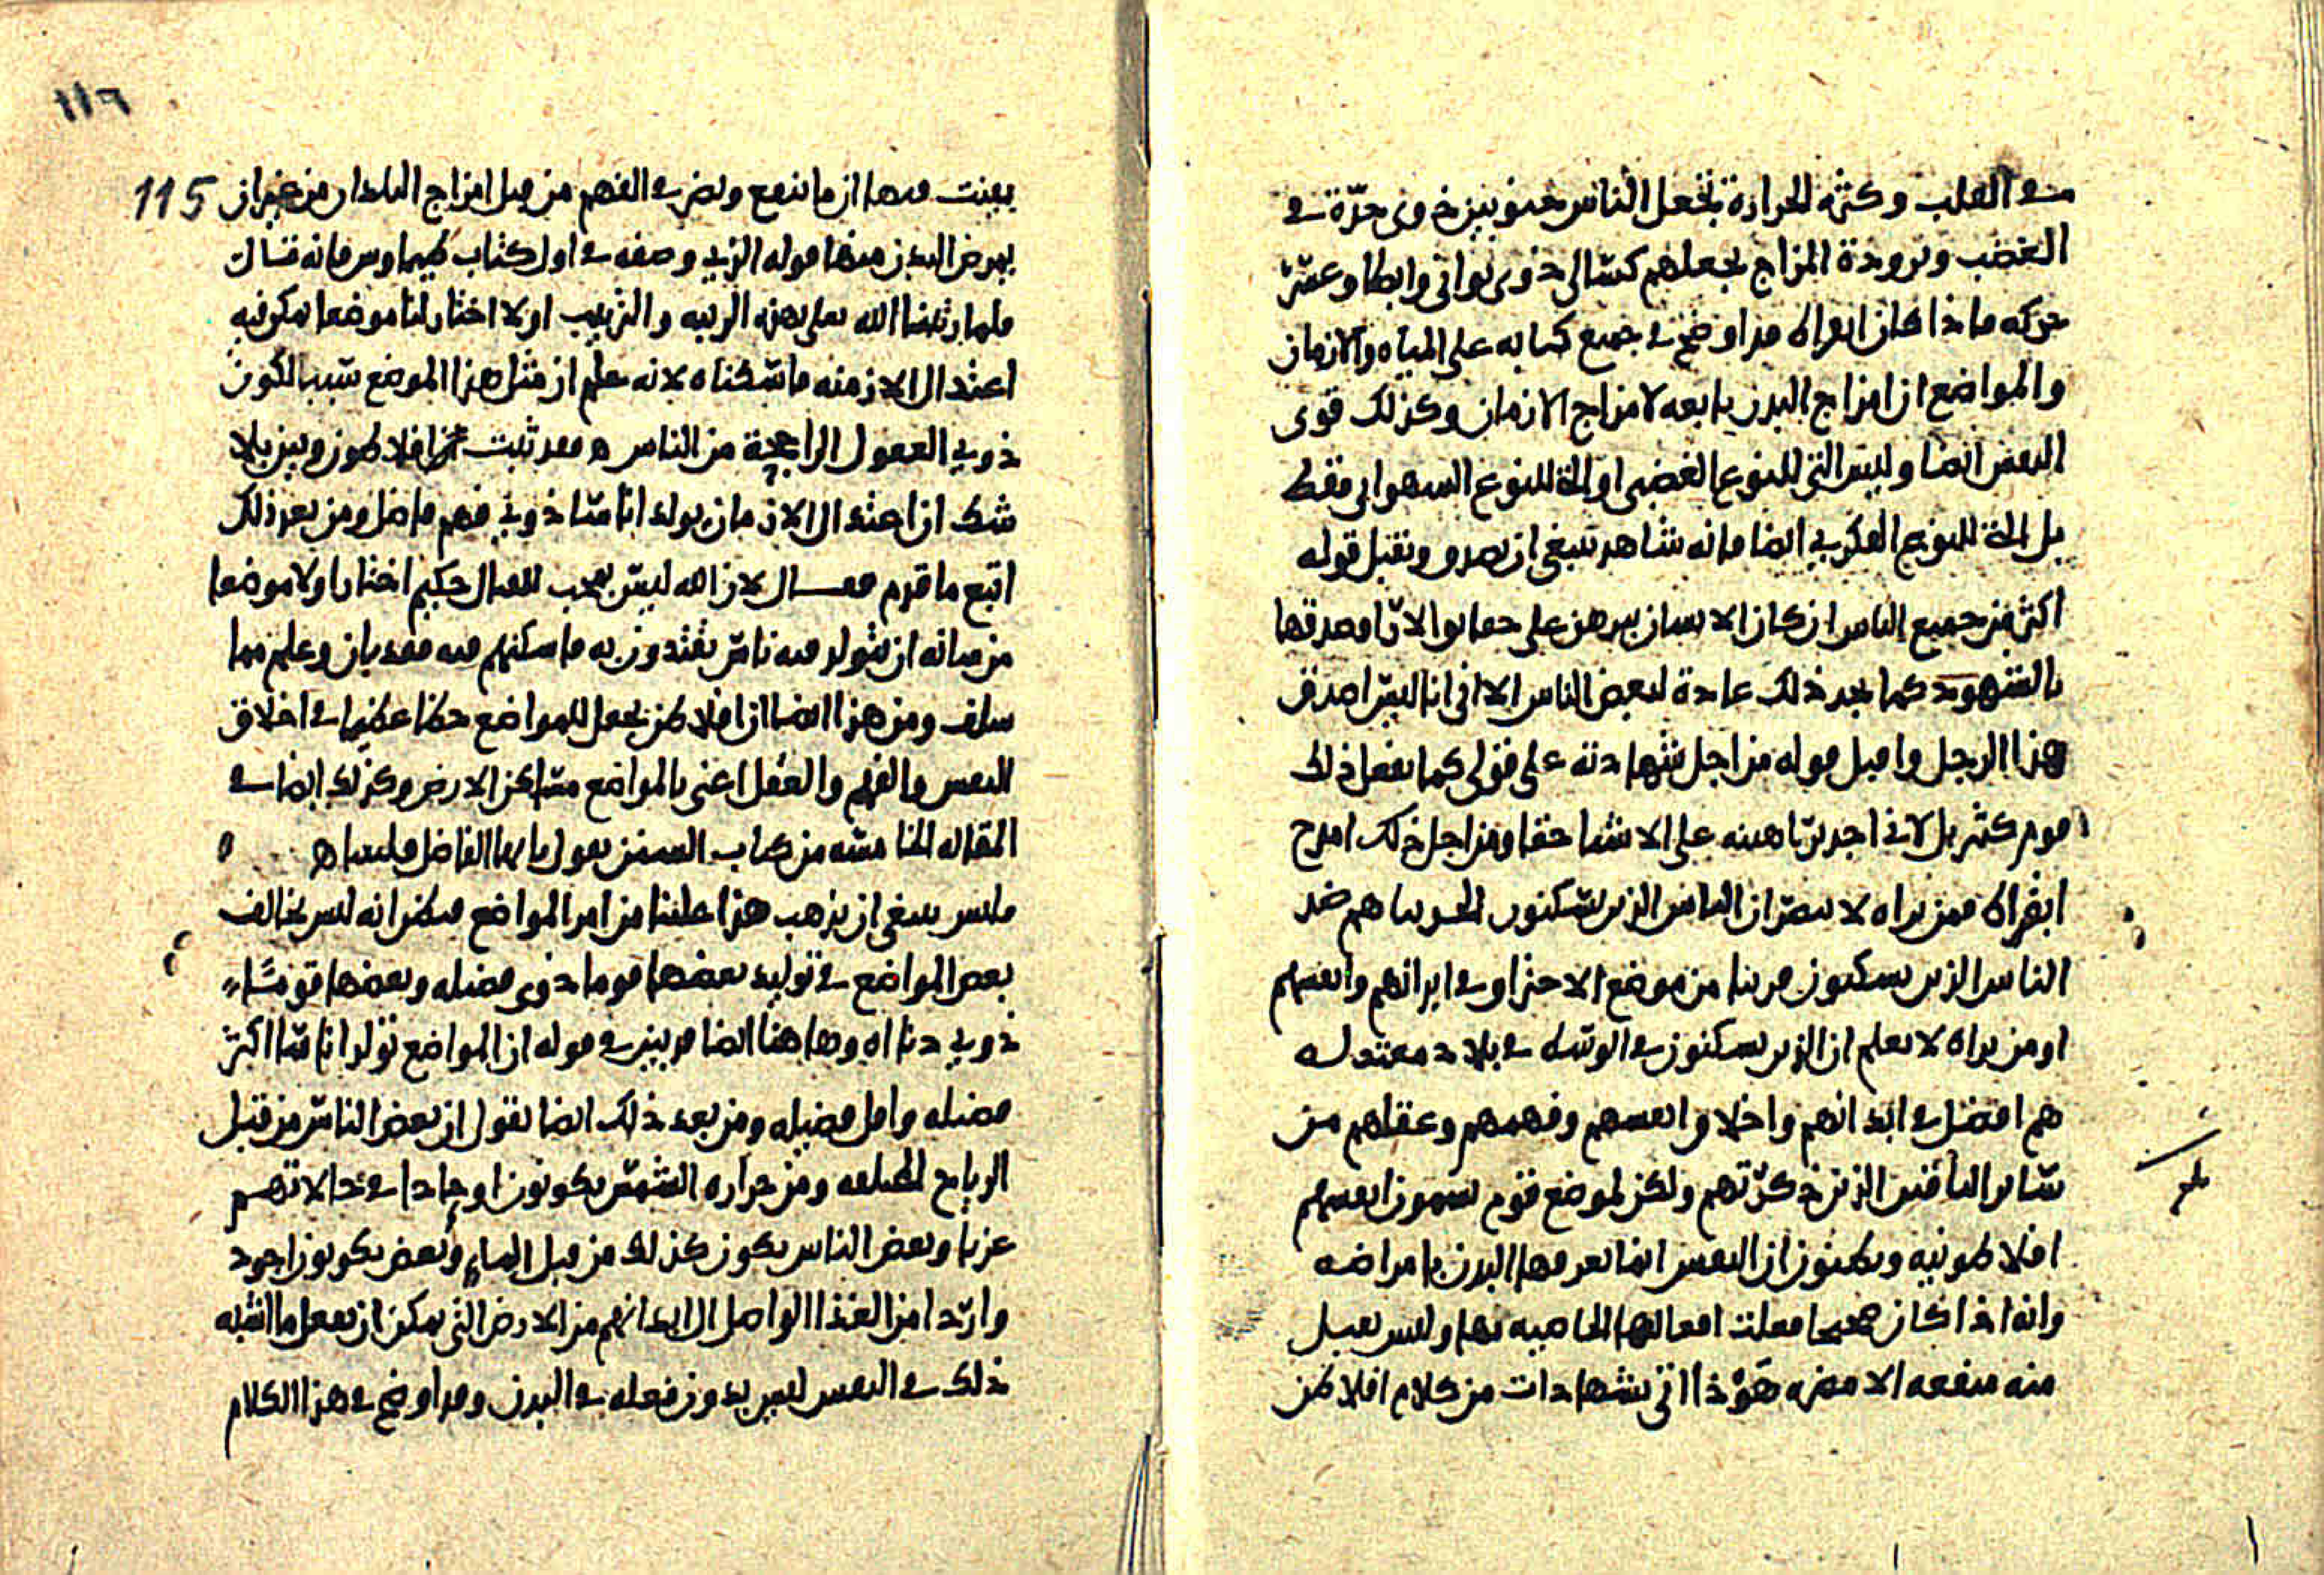 في القلب وكثرة الحرارة تجعل الناس غضوبين ذوى حدّة في
الغضب وبرودة المزاج يجعلهم كسالى ذوى توانى وابطا وعسر
حركه فاذا كان ابقراط قد اوضح في جميع كتابه على المياه والازمان
والمواضع ان امزاج البدن تابعه لامزاج الازمان وكذلك قوى
النفس ايضا وليس التي للنوع الغضبي او التي للنوع الشهواني فقط
بل التي للنوع الفكري ايضا فانه شاهد ينبغي ان يصدق ويقبل قوله
اكثر من جميع الناس ان كان الانسان يبرهن على حقايق الاراء صدقها
بالشهود كما نجد ذلك عادة لبعض الناس الا انى انا ليس اصدق
هذا الرجل واقبل قوله من اجل شهادته على قولى كما يفعل ذلك
قوم كثير بل لاني اجد براهينه على الاشيا حقا ومن اجل ذلك امدح
ابقراط فمن تراه لا يبصر ان الناس الذين يسكنون الجربيا هم ضد
الناس الذين يسكنون قريبا من موضع الاحتراق في ابدانهم وانفسهم
او من تراه لا يعلم ان الذين يسكنون في الوسط في بلاد معتدله
هم افضل في ابدانهم واخلاق انفسهم وفهمهم وعقلهم من
ساير الناس الذين ذكرتهم ولكن لموضع قوم يسمون انفسهم
افلاطونيه ويظنون ان النفس انما يعوقها البدن بامراضه
وانه اذا كان صحيحا فعلت افعالها الخاصيه بها وليس تقبل
منه منفعه الا مضره هوذا اتي بشهادات من كلام افلاطن
١١٦
115
يبينت فيها ان ما ينفع ويضر في الفهم من قبل امزاج البلدان من غير ان
يمرض البدن منها قوله الذي وصفه في اول كتاب طيماوس فانه قال
فلما رتبنا الله تعلى بهذه الرتبه والترتيب اولا اختار لنا موضعا يكون فيه
اعتدال الازمنه فاسكناه لانه علم ان مثل هذا الموضع سبب لكون
ذوي العقول الراجحة من الناس فقد ثبت افلاطون وبين بلا
شك ان اعتدال الازمان يولد اناسا ذوي فهم فاضل ومن بعد ذلك
اتبع ما قدم فقال لان الله ليس بمحب للقتال حكيم اختار اولا موضعا
من شانه ان يتولد فيه ناس يقتدون به فاسكنهم فيه فقد بان وعلم مما
سلف ومن هذا ايضا ان افلاطن يجعل للمواضع حظا عظيما في اخلاق
النفس والفهم والعقل اعنى بالمواضع مساكن الارض وكذلك ايضا في
المقاله الخامسه من كتاب السنن يقول يا ايها الفاضل فلينياس
فليس ينبغي ان يذهب هذا علينا من امر المواضع فيظن انه ليس يخالف
بعض المواضع في توليد بعضها قوما ذوى فضله وبعضها قوما
ذوي دناه وها هنا ايضا قد بين في قوله ان المواضع تولد اناسا اكثر
فضله واقل فضيله ومن بعد ذلك ايضا يقول ان بعض الناس من قبل
الرياح المختلفه ومن حراره الشمس يكونون اوجادا في حالاتهم
غربا وبعض الناس يكون كذلك من قبل الماء وبعض يكونون اجود
واردا من الغذا الواصل الى ابدانهم من الارض التي يمكن ان تفعل ما اشبه
ذلك في النفس ليس بدون فعله في البدن وقد اوضح في هذا الكلام